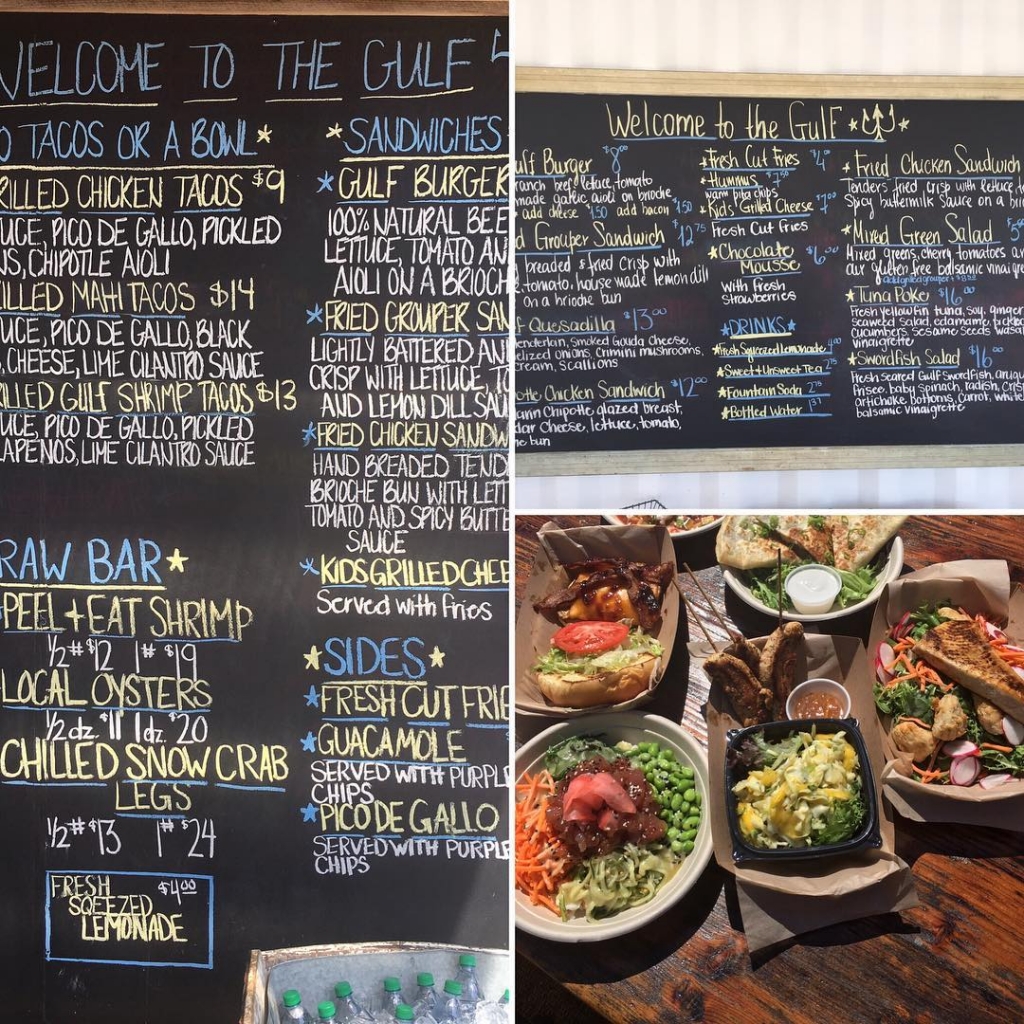 WELCOME TO THE GULF
TACOS OR A BOWL
GRILLED CHICKEN TACOS $9
UCE, PICO DE GALLO, PICKLED
NS, CHIPOTLE AIOLI
ILLED MAHI TACOS $14
UCE, PICO DE GALLO, BLACK
CHEESE, LIME CILANTRO SAUCE
RILLED GULF SHRIMP TACOS $13
UCE, PICO DE GALLO, PICKLED
LAPENOS, LIME CILANTRO SAUCE
RAW BAR
PEEL + EAT SHRIMP
1/2# $12 1# $19
LOCAL OYSTERS
1/2dz. $11 1dz. $20
CHILLED SNOW CRAB
LEGS
1/2# $13 1# $24
FRESH $4.00
SQEEZED
LEMONADE
SANDWICHES
GULF BURGER
100% NATURAL BEE
LETTUCE, TOMATO AN
AIOLI ON A BRIOCH
FRIED GROUPER SAN
LIGHTLY BATTERED AN
CRISP WITH LETTUCE, TO
AND LEMON DILL SAU
FRIED CHICKEN SANDW
HAND BREADED TEND
BRIOCHE BUN WITH LETT
TOMATO AND SPICY BUTTE
SAUCE
KIDS GRILLED CHEE
Served with fries
SIDES
FRESH CUT FRIE
GUACAMOLE
SERVED WITH PURPLE
CHIPS
PICO DE GALLO
SERVED WITH PURPLE
CHIPS
Welcome to the Gulf
ulf Burger $8
ranch beef, letuce, tomato
made garlic aioli on brioche
add cheese $1.50 add bacon $1.50
d Grouper Sandwich $12.75
breaded & fried Crisp with
e, tomato, house wade lemon dill
on a brioche bun
f Quesadilla $13.00
enderloin, smoked Gouda cheese,
elized onions, Crimini mushrooms,
cream, scallions
otle Chicken Sandwich $12.00
ann Chipotle, glazed breast,
dar Cheese, lettuce, tomato,
he bun
Fresh Cut Fries $4
Hummus
warm pita chips
Kids Grilled Cheese
Fresh Cut fries
Chocolate $6.00
Mousse
With fresh
Strawberries
DRINKS
Fresh Squeezed Lemonade 4.00
Sweet + Unsweet Tea 2.75
Fountain Soda 2.75
Bottled Water
Fried Chicken Sandwich
Tenders fried crisp with letuce, t
Spicy buttermilk sauce on a bri
Mixed Green Salad
Mixed greens, cherry tomatoes a
our gluten free balsmic vinaigre
Tuna Poke $16.00
Fresh yellow fin tuna, soy, ginger
seaweed salad, edamame, tackle
cucumbers, sesame seeds wasa
vinaigrette
Swordfish Salad $16.00
Fresh seared Gulf Swordfish, arugu
frisee, baby spinach, radish, Crisp
artichoke bottoms, Carrot, white
balsamic vinaigrette